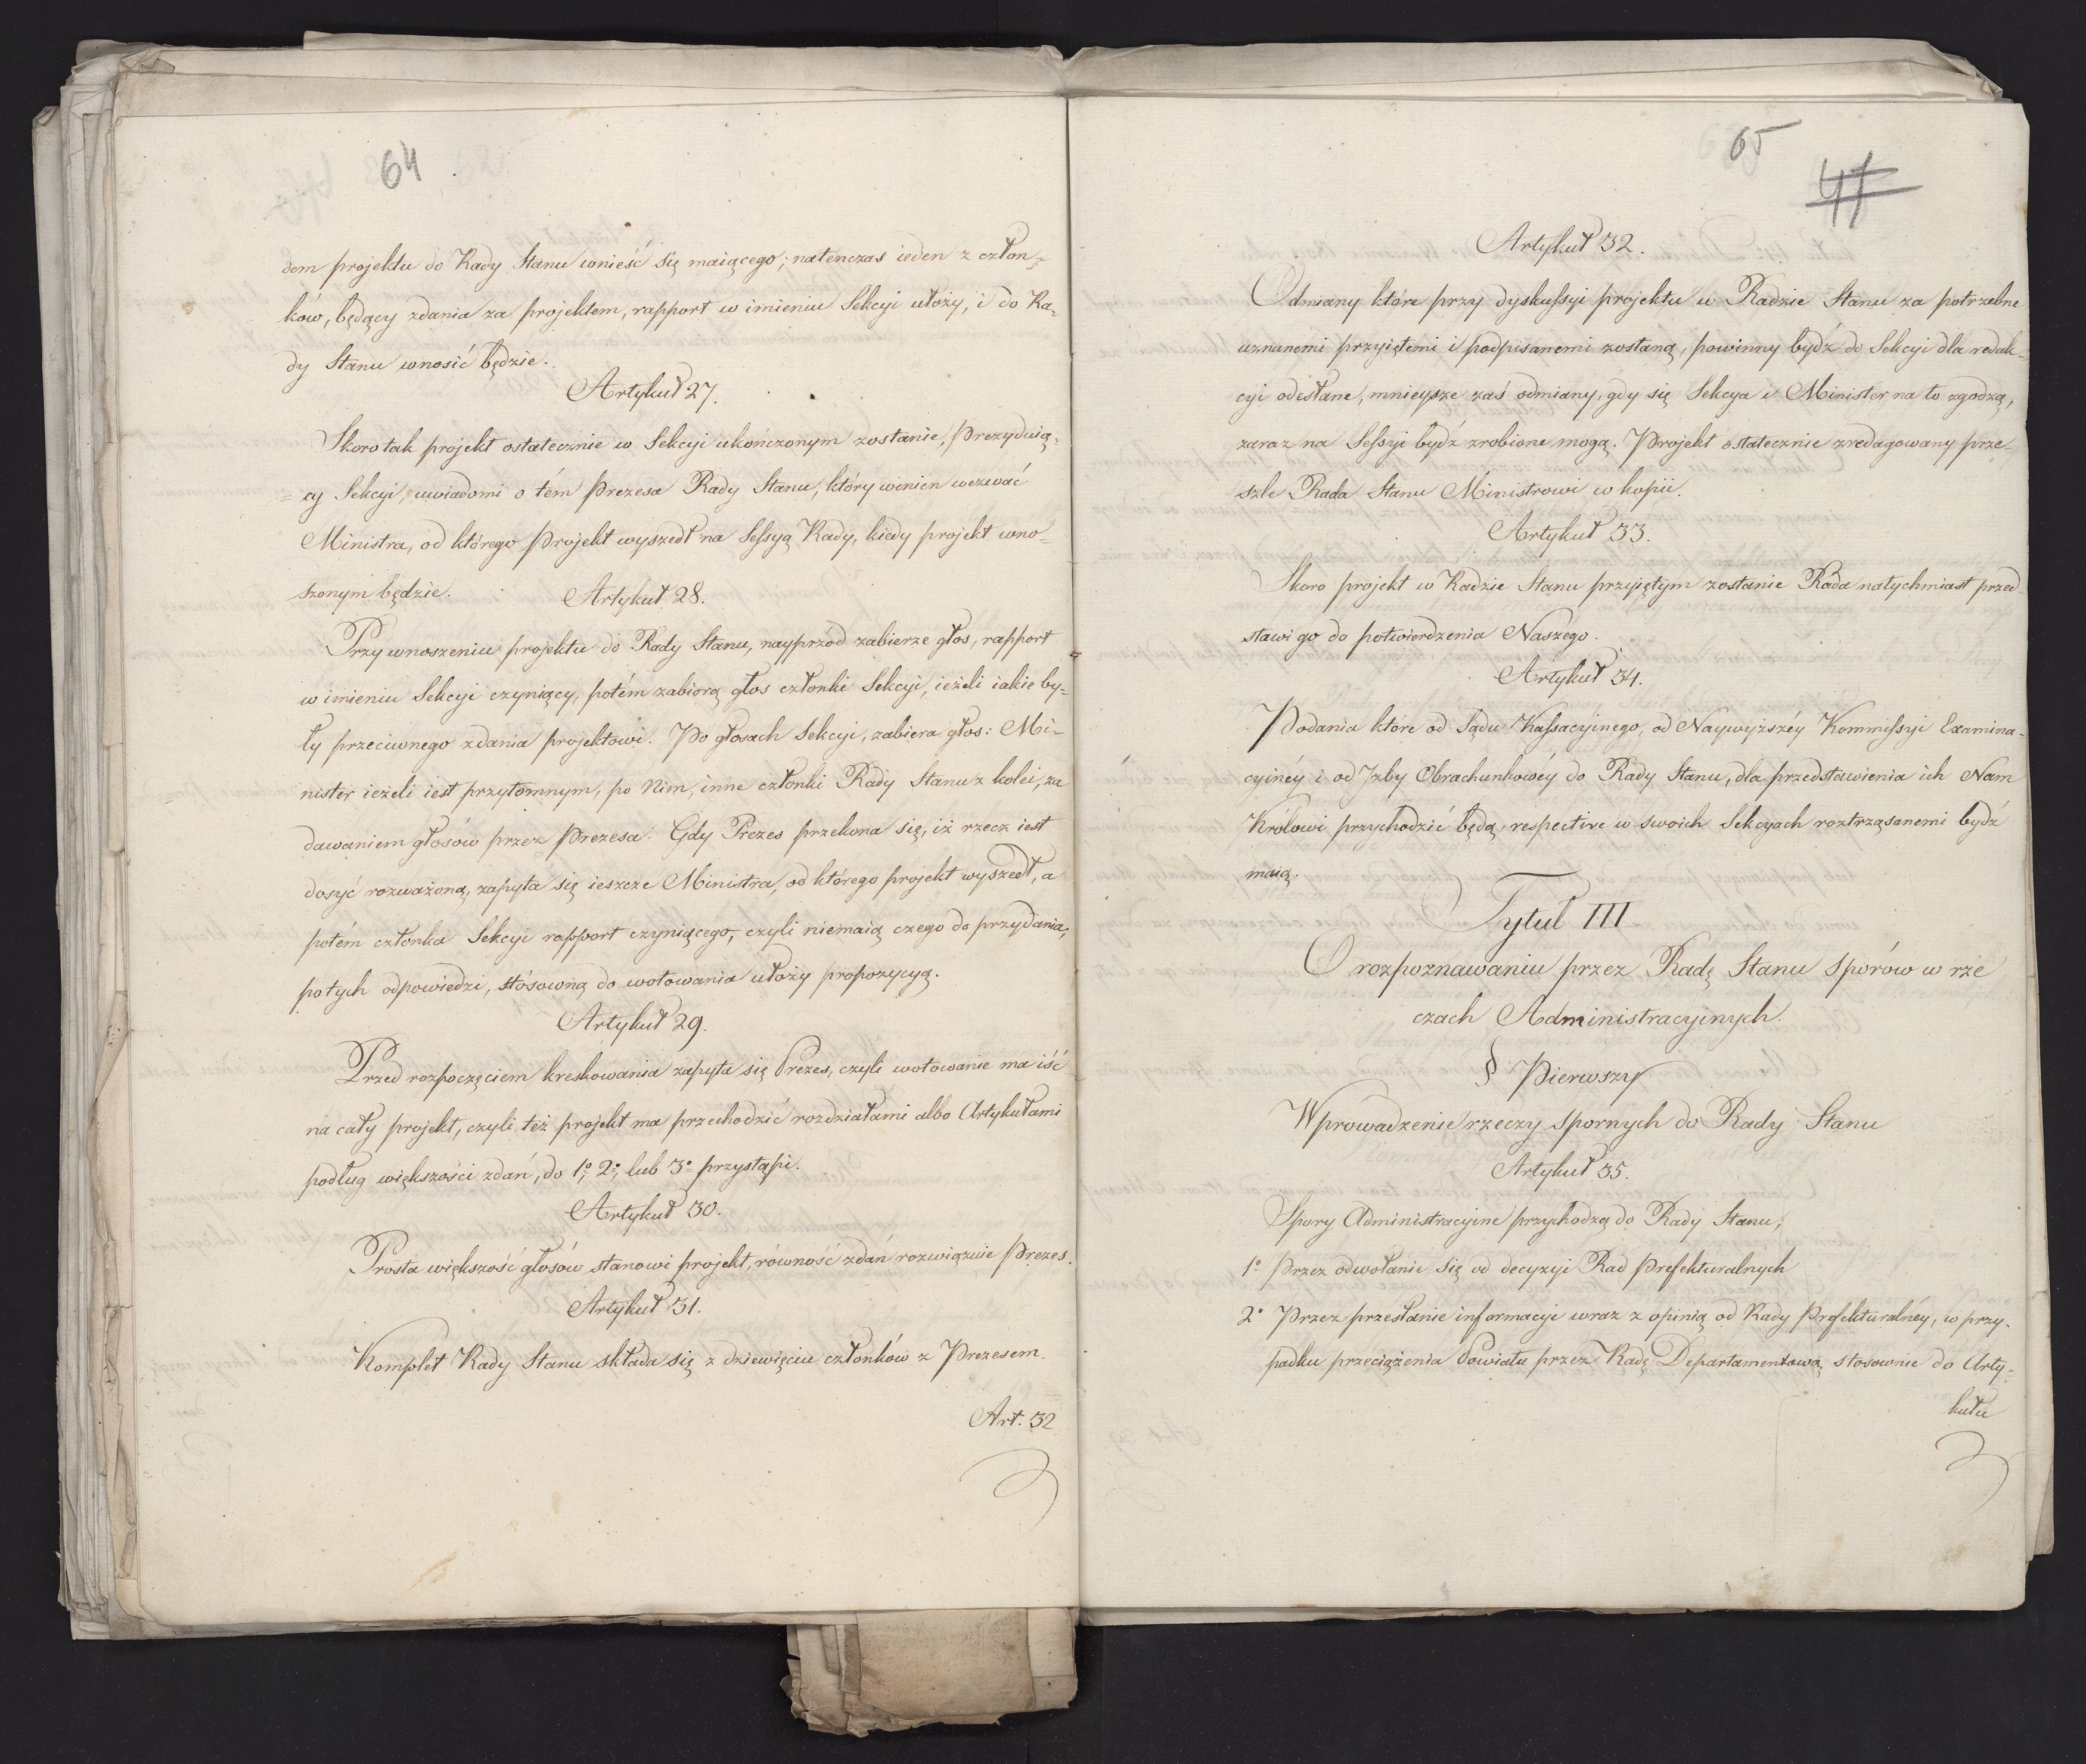 64
dem projektu do Rady Stanu wnieść się maiącego; natenczas ieden z człon=
ków, będący zdania za projektem, rapport w imieniu Sekcyi ułoży, i do Ra=
dy Stanu wnosić będzie.
Artykuł 27.
Skoro tak projekt ostatecznie w Sekcyi ukończonym zostanie, Prezyduią=
=cy Sekcyi, uwiadomi o tém Prezesa Rady Stanu, który winien wezwać
Ministra, od którego Projekt wyszedł na Sessyą Rady, kiedy projekt wno=
szonym będzie.
Artykuł 28.
Przy wnoszeniu projektu do Rady Stanu, nayprzod zabierze głos, rapport
w imieniu Sekcyi czyniący, potém zabiorą głos członki Sekcyi, ieżeli iakie by=
ły przeciwnego zdania projektowi. Po głosach Sekcyi, zabiera głos: Mi=
nister ieżeli iest przytomnym, po Nim, inne członki Rady Stanu z kolei, za
dawaniem głosów przez Prezesa. Gdy Prezes przekona się, iż rzecz iest
dosyć rozważoną, zapyta się ieszcze Ministra, od którego projekt wyszedł, a
potém członka Sekcyi rapport czyniącego, czyli niemaią czego do przydania,
po tych odpowiedzi, stósowną do wotowania ułoży propozycyą.
Artykuł 29.
Przed rozpoczęciem kreskowania zapyta się Prezes, czyli wotowanie ma iść
na cały projekt, czyli też projekt ma przechodzić rozdziałami albo Artykułami
podług większości zdań, do 1º, 2º, lub 3º przystąpi.
Artykuł 30.
Prosta większość głosów stanowi projekt, równość zdań rozwiązuie Prezes.
Artykuł 31.
Komplet Rady Stanu składa się z dziewięciu członków z Prezesem.
Art. 32
65
47
Artykuł 32.
Odmiany które przy dyskussyi projektu w Radzie Stanu za potrzebne
uznanemi przyiętemi i podpisanemi zostaną, powinny bydź do Sekcyi dla redak=
cyi odesłane, mnieysze zaś odmiany, gdy się Sekcya i Minister na to zgodzą,
zaraz na Sessyi bydź zrobione mogą. Projekt ostatecznie zredagowany prze=
szle Rada Stanu Ministrowi w kopii.
Artykuł 33.
Skoro projekt w Radzie Stanu przyiętym zostanie Rada natychmiast przed
stawi go do potwierdzenia Naszego.
Artykuł 34.
Podania które od Sądu Kassacyinego, od Naywyższéy Kommissyi Examina=
cyinéy i od Jzby Obrachunkowéy do Rady Stanu, dla przedstawienia ich Nam
Królowi przychodzić będą, respective w swoich Sekcyach roztrząsanemi bydź
maią.
Tytuł III
O rozpoznawaniu przez Radę Stanu sporów w rze
czach Administracyinych.
§ Pierwszy
Wprowadzenie rzeczy spornych do Rady Stanu
Artykuł 35.
Spory Administracyine przychodzą do Rady Stanu,
1º Przez odwołanie się od decyzyi Rad Prefekturalnych
2º Przez przesłanie informacyi wraz z opinią od Rady Prefekturalnéy, w przy=
padku przeciążenia Powiatu przez Radę Departamentową stosownie do Arty=
kułu